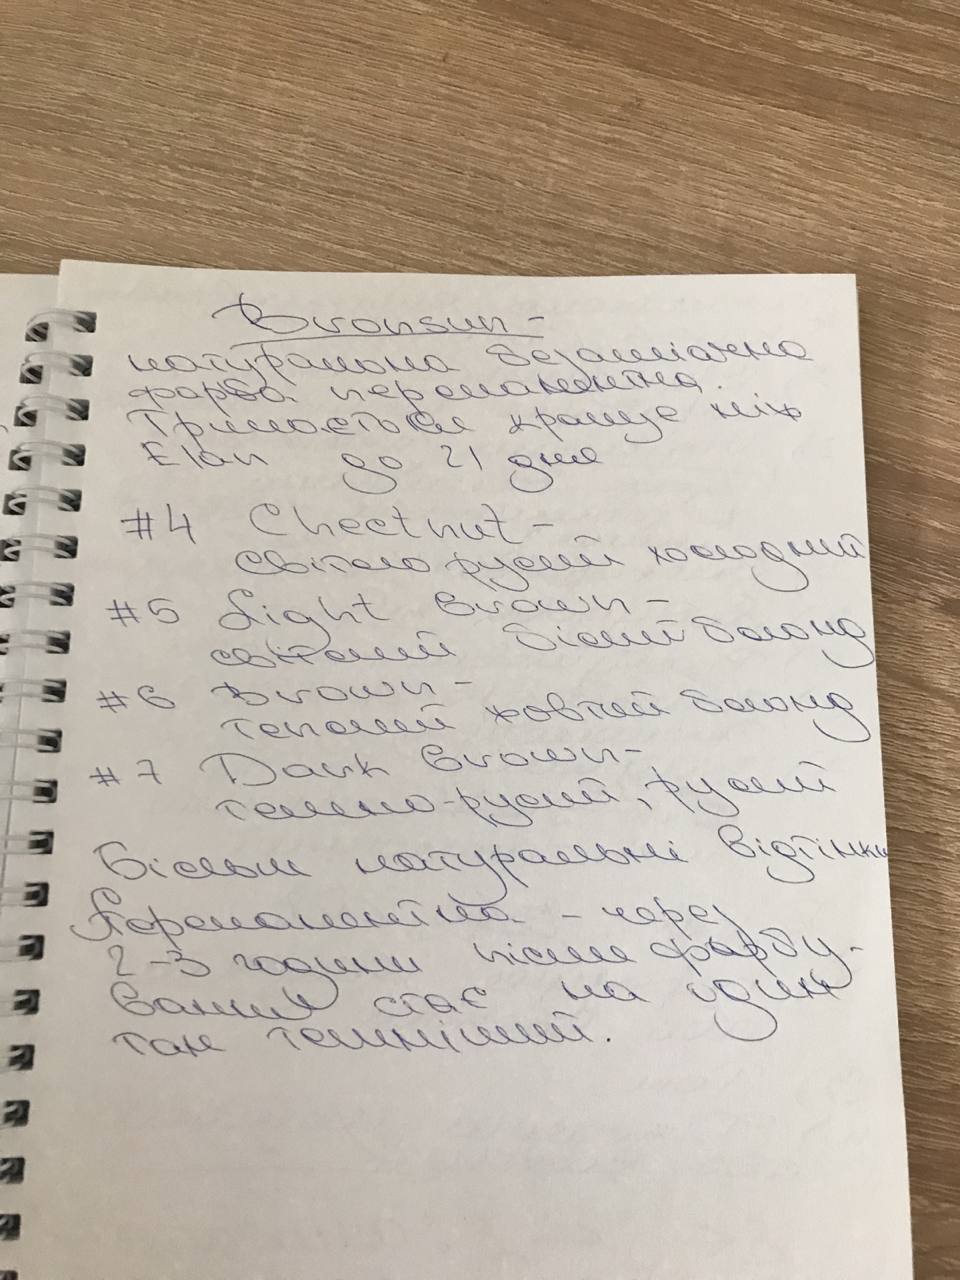 Bronsun -
натуральна безаміачна
фарба перманентна.
Тримається краще ніж
Elan до 21 дня
#4 Chectnut -
світло русий холодний
#5 Light Brown -
світлий білий блонд
#6 Brown -
теплий жовтий блонд
#7 Dark Brown -
темно-русий, русий
Більш натуральні відтінки
Перманентна - через
2-3 години після фарбу-
вання стає на один
тон темніший.